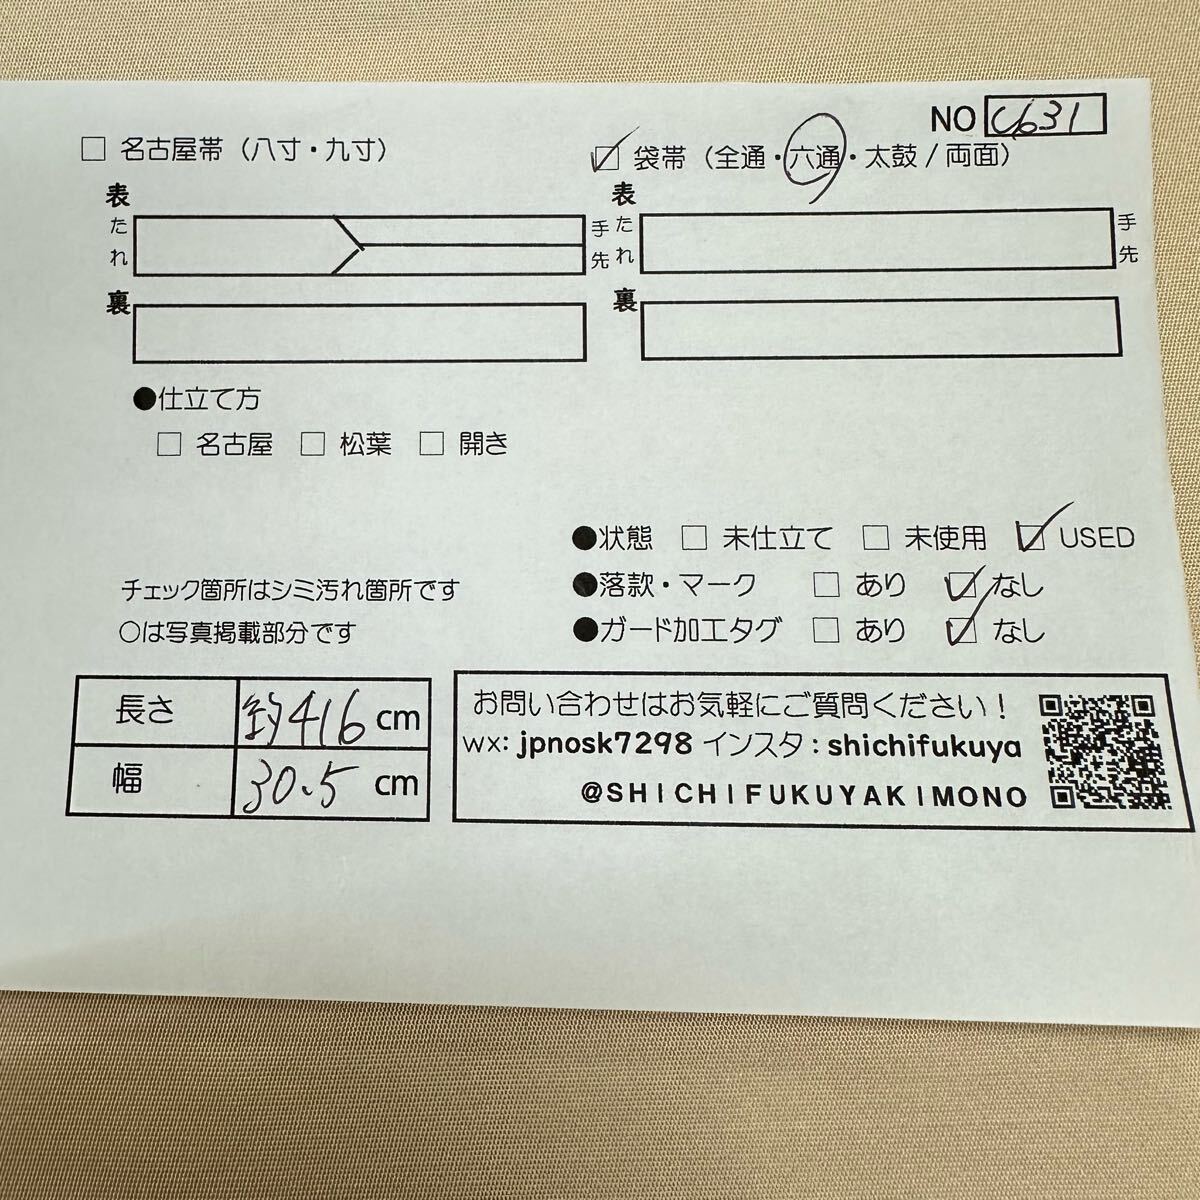 NO U631
□ 名古屋帯（八寸・九寸）
☑ 袋帯（全通・六通・太鼓/両面）
表
たれ
手先
裏
表
たれ
手先
裏
●仕立て方
□ 名古屋 □ 松葉 □ 開き
●状態 □ 未仕立て □ 未使用 ☑ USED
●落款・マーク □ あり ☑ なし
●ガード加工タグ □ あり ☑ なし
チェック箇所はシミ汚れ箇所です
○は写真掲載部分です
長さ 約416 cm
幅 30.5 cm
お問い合わせはお気軽にご質問ください！
wx: jpnosk7298 インスタ：shichifukuya
@SHICHIFUKUYAKIMONO